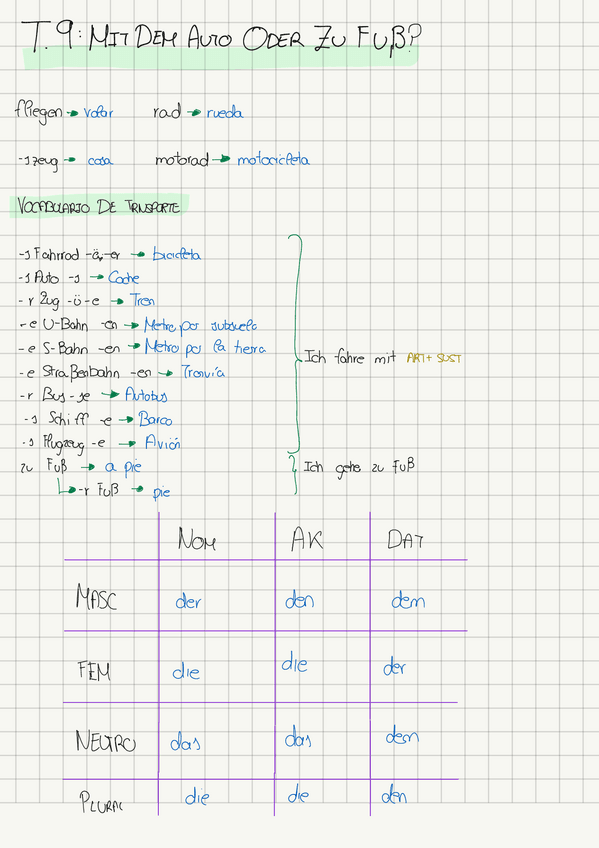 T.9: MIT DEM AUTO ODER ZU FUß?
fliegen → volar rad → rueda
-s zeug → cosa motorad → motocicleta
VOCABULARIO DE TRNSPORTE
-s Fahrrad -ä,-er → bicicleta
-s Auto -s → Coche
-r Zug -ü-e → Tren
-e U-Bahn -en → Metro por subsuelo
-e S-Bahn -en → Metro por la tierra
Ich fahre mit ART + SUST
-e Straßenbahn -en → Tranvía
-r Bus -se → Autobus
-s Schiff -e → Barco
-s Flugzeug -e → Avión
zu Fuß → a pie Ich gehe zu Fuß
→ -r Fuß → pie
NOM AK DAT
MASC der den dem
FEM die die der
NEUTRO das das dem
PLURAL die die den